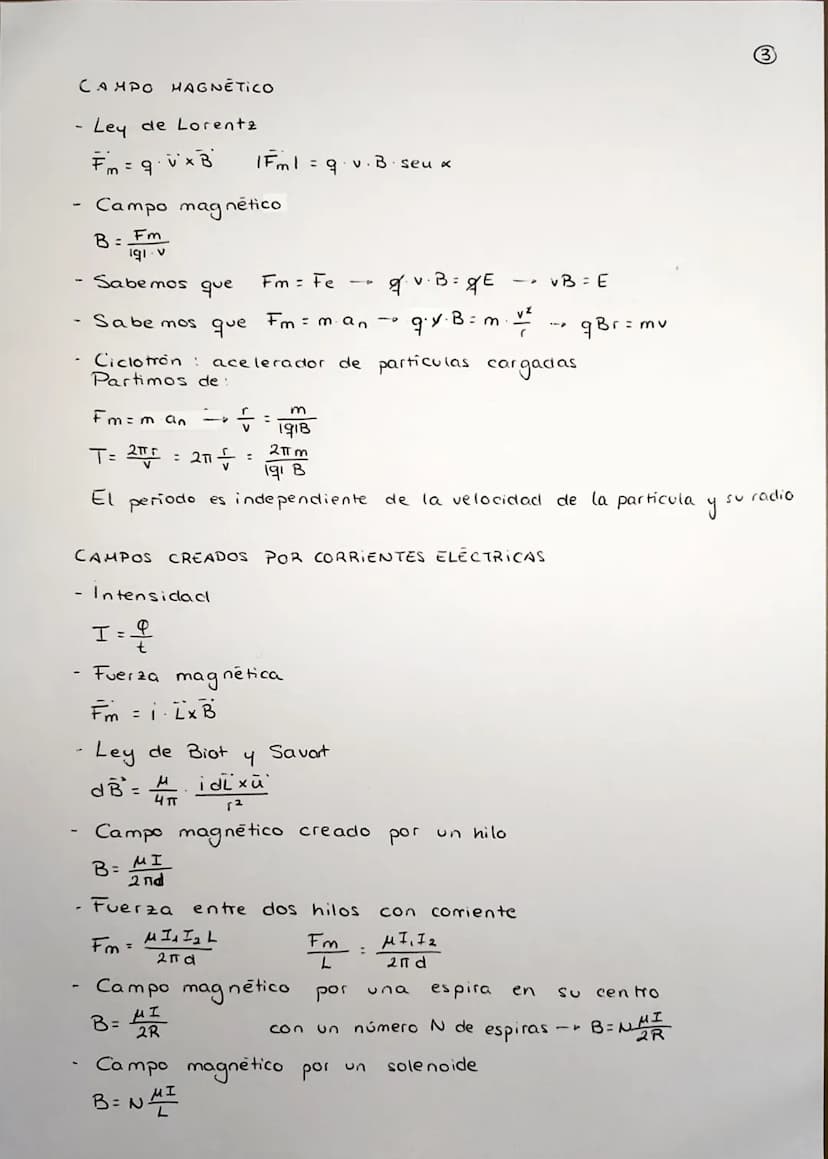 ③
CAMPO MAGNÉTICO
- Ley de Lorentz
F̄m = q · v̄ × B̄    |F̄m| = q · v · B · seu α
- Campo magnético
B = Fm / |q| · v
- Sabemos que Fm = Fe → q · v · B = qE → vB = E
- Sabemos que Fm = m · an → q · v · B = m · v² / r → qBr = mv
- Ciclotrón : acelerador de partículas cargadas
Partimos de :
Fm = m an → r / v = m / |q|B
T = 2πr / v = 2π r / v = 2πm / |q| B
El período es independiente de la velocidad de la partícula y su radio
CAMPOS CREADOS POR CORRIENTES ELÉCTRICAS
- Intensidad
I = φ / t
- Fuerza magnética
F̄m = i · L̄ × B̄
- Ley de Biot y Savart
dB̄ = μ / 4π · i dL̄ × ū / r²
- Campo magnético creado por un hilo
B = μI / 2πd
- Fuerza entre dos hilos con corriente
Fm = μ I₁ I₂ L / 2π d    Fm / L = μ I₁ I₂ / 2π d
- Campo magnético por una espira en su centro
B = μI / 2R    con un número N de espiras → B = N μI / 2R
- Campo magnético por un solenoide
B = N μI / L